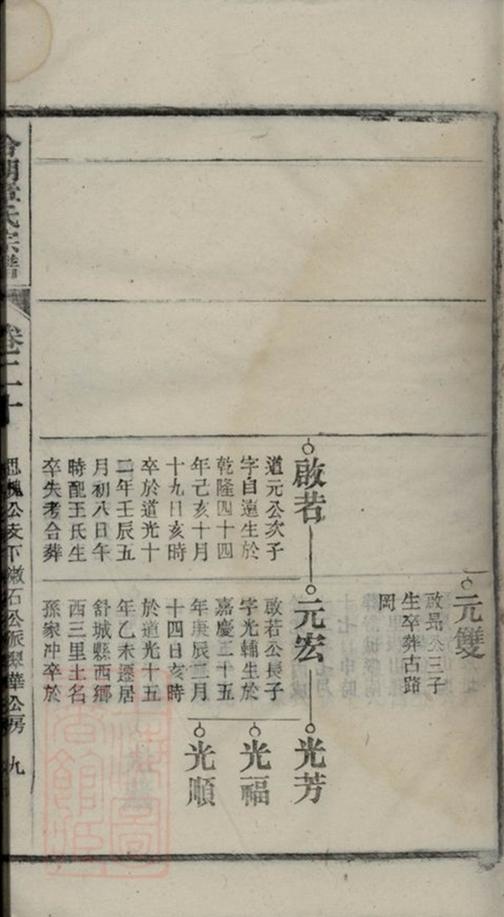 元雙
啟昻公三子
生卒葬古路
岡
啟若
道元公次子
字自遠生於
乾隆四十四
年己亥十月
十九日亥時
卒於道光十
二年壬辰五
月初八日午
時配王氏生
卒失考合葬
元宏
啟若公長子
字光輔生於
嘉慶二十五
年庚辰三月
十四日亥時
於道光十五
年乙未遷居
舒城縣西鄉
西三里土名
孫家冲卒於
光芳
光福
光順
氏宗譜
卷二十
思槐公支下漵石公派翠華公房 九